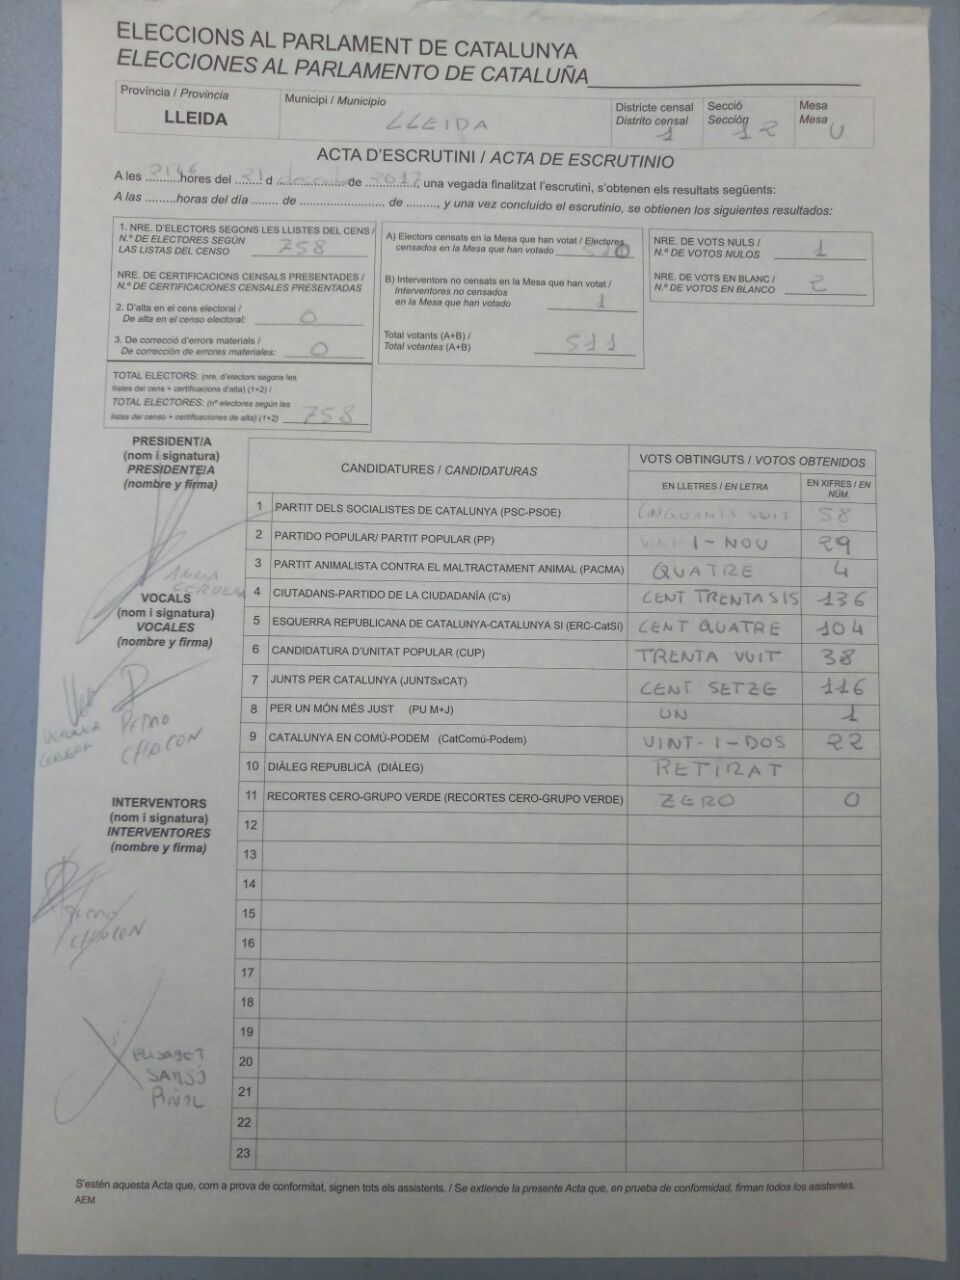 ELECCIONS AL PARLAMENT DE CATALUNYA
ELECCIONES AL PARLAMENTO DE CATALUÑA
Província / Provincia
LLEIDA
Municipi / Municipio
LLEIDA
Districte censal
Distrito censal
1
Secció
Sección
12
Mesa
Mesa
U
ACTA D'ESCRUTINI / ACTA DE ESCRUTINIO
A les 21'46 hores del 21 d desembre de 2017, una vegada finalitzat l'escrutini, s'obtenen els resultats següents:
A las .........horas del día ........ de ........................ de ........., y una vez concluido el escrutinio, se obtienen los siguientes resultados:
1. NRE. D'ELECTORS SEGONS LES LLISTES DEL CENS /
N.º DE ELECTORES SEGÚN
LAS LISTAS DEL CENSO 758
NRE. DE CERTIFICACIONS CENSALS PRESENTADES /
N.º DE CERTIFICACIONES CENSALES PRESENTADAS
2. D'alta en el cens electoral /
De alta en el censo electoral: 0
3. De correcció d'errors materials /
De corrección de errores materiales: 0
TOTAL ELECTORS: (nre. d'electors segons les
llistes del cens + certificacions d'alta) (1+2) /
TOTAL ELECTORES: (nº electores según las
listas del censo + certificaciones de alta) (1+2) 758
A) Electors censats en la Mesa que han votat / Electores
censados en la Mesa que han votado 510
B) Interventors no censats en la Mesa que han votat /
Interventores no censados
en la Mesa que han votado 1
Total votants (A+B) /
Total votantes (A+B) 511
NRE. DE VOTS NULS /
N.º DE VOTOS NULOS 1
NRE. DE VOTS EN BLANC /
N.º DE VOTOS EN BLANCO 2
PRESIDENT/A
(nom i signatura)
PRESIDENTE/A
(nombre y firma)
ANNA
VOCALS
(nom i signatura)
VOCALES
(nombre y firma)
CERVERA
CHACON
INTERVENTORS
(nom i signatura)
INTERVENTORES
(nombre y firma)
CHACON
ELISABET
PIÑOL
CANDIDATURES / CANDIDATURAS
VOTS OBTINGUTS / VOTOS OBTENIDOS
EN LLETRES / EN LETRA
EN XIFRES / EN NÚM.
1 PARTIT DELS SOCIALISTES DE CATALUNYA (PSC-PSOE) CINQUANTA VUIT 58
2 PARTIDO POPULAR/ PARTIT POPULAR (PP) VINT-I-NOU 29
3 PARTIT ANIMALISTA CONTRA EL MALTRACTAMENT ANIMAL (PACMA) QUATRE 4
4 CIUTADANS-PARTIDO DE LA CIUDADANÍA (C's) CENT TRENTASIS 136
5 ESQUERRA REPUBLICANA DE CATALUNYA-CATALUNYA SI (ERC-CatSí) CENT QUATRE 104
6 CANDIDATURA D'UNITAT POPULAR (CUP) TRENTA VUIT 38
7 JUNTS PER CATALUNYA (JUNTSxCAT) CENT SETZE 116
8 PER UN MÓN MÉS JUST (PU M+J) UN 1
9 CATALUNYA EN COMÚ-PODEM (CatComú-Podem) VINT-I-DOS 22
10 DIÀLEG REPUBLICÀ (DIÀLEG) RETIRAT
11 RECORTES CERO-GRUPO VERDE (RECORTES CERO-GRUPO VERDE) ZERO 0
12
13
14
15
16
17
18
19
20
21
22
23
S'estén aquesta Acta que, com a prova de conformitat, signen tots els assistents. / Se extiende la presente Acta que, en prueba de conformidad, firman todos los asistentes.
AEM